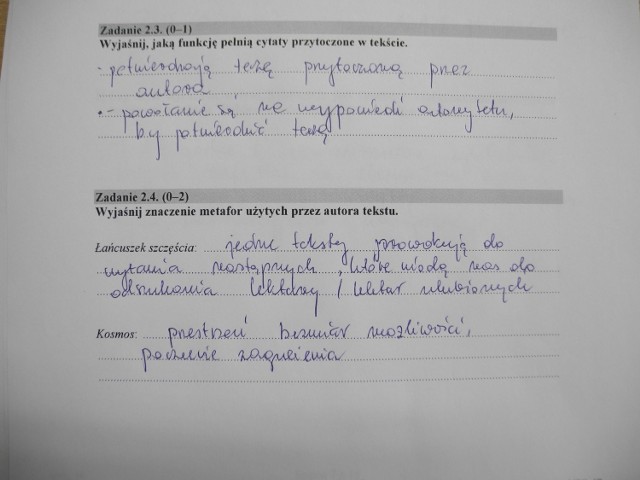 Zadanie 2.3. (0–1)
Wyjaśnij, jaką funkcję pełnią cytaty przytoczone w tekście.
- potwierdzają tezę przytoczoną przez
autora
- powołanie się na wypowiedź autorytetu,
by potwierdzić tezę
Zadanie 2.4. (0–2)
Wyjaśnij znaczenie metafor użytych przez autora tekstu.
Łańcuszek szczęścia: jedne teksty prowokują do
czytania następnych, które wiodą nas do
odszukania lektury / lektur ulubionych
Kosmos: przestrzeń bezmiar możliwości,
poczucie zagubienia